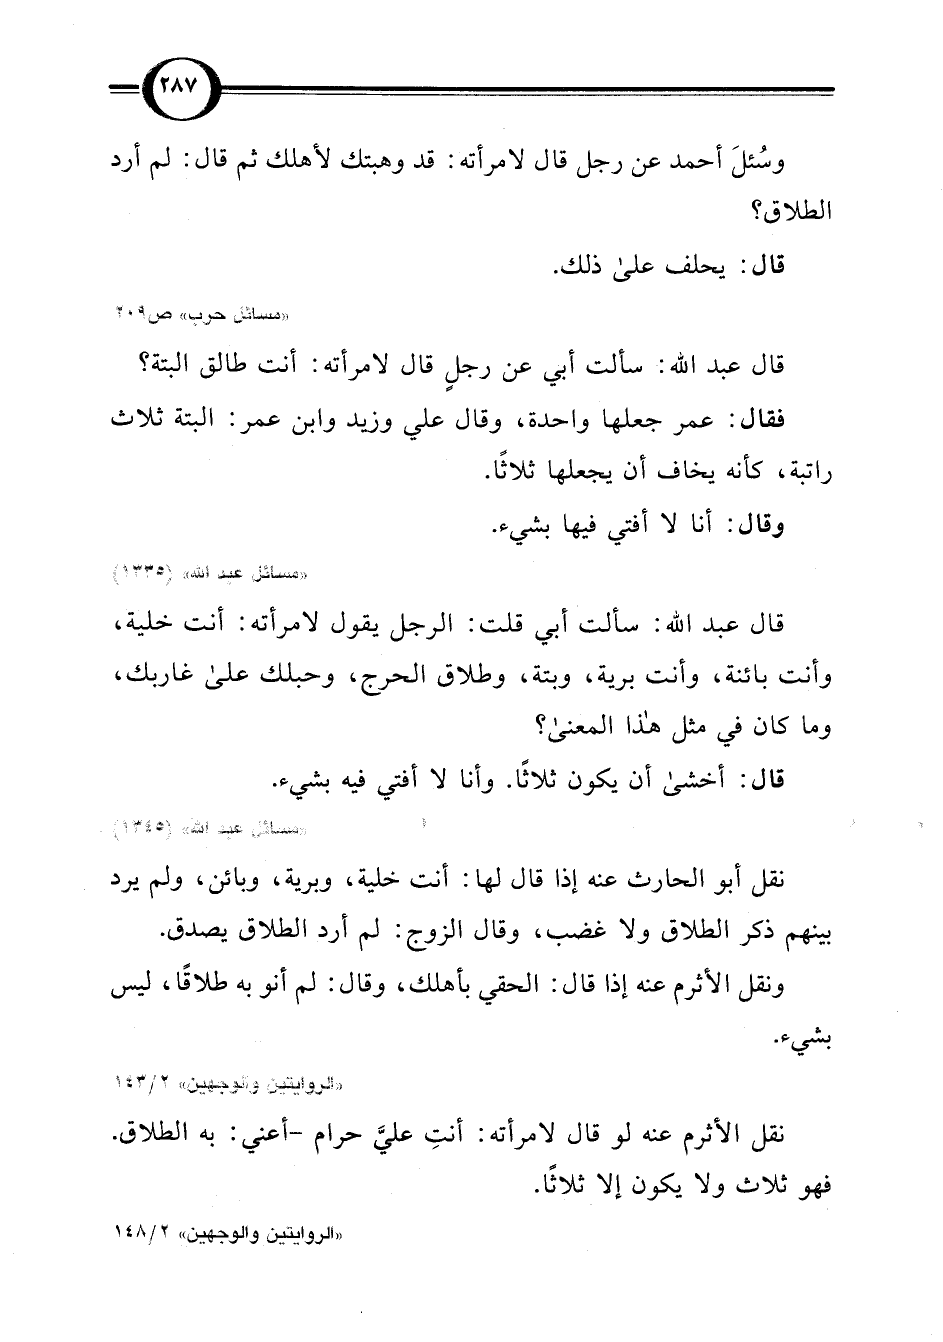 ٢٨٧
وسُئلَ أحمد عن رجل قال لامرأته: قد وهبتك لأهلك ثم قال: لم أرد
الطلاق؟
قال: يحلف علىٰ ذلك.
«مسائل حرب» ص٢٠٩
قال عبد الله: سألت أبي عن رجلٍ قال لامرأته: أنت طالق البتة؟
فقال: عمر جعلها واحدة، وقال علي وزيد وابن عمر: البتة ثلاث
راتبة، كأنه يخاف أن يجعلها ثلاثًا.
وقال: أنا لا أفتي فيها بشيء.
«مسائل عبد الله» (١٣٣٥)
قال عبد الله: سألت أبي قلت: الرجل يقول لامرأته: أنت خلية،
وأنت بائنة، وأنت برية، وبتة، وطلاق الحرج، وحبلك علىٰ غاربك،
وما كان في مثل هذا المعنىٰ؟
قال: أخشىٰ أن يكون ثلاثًا. وأنا لا أفتي فيه بشيء.
«مسائل عبد الله» (١٣٤٥)
نقل أبو الحارث عنه إذا قال لها: أنت خلية، وبرية، وبائن، ولم يرد
بينهم ذكر الطلاق ولا غضب، وقال الزوج: لم أرد الطلاق يصدق.
ونقل الأثرم عنه إذا قال: الحقي بأهلك، وقال: لم أنو به طلاقًا، ليس
بشيء.
«الروايتين والوجهين» ١٤٣/٢
نقل الأثرم عنه لو قال لامرأته: أنتِ عليَّ حرام -أعني: به الطلاق.
فهو ثلاث ولا يكون إلا ثلاثًا.
«الروايتين والوجهين» ١٤٨/٢